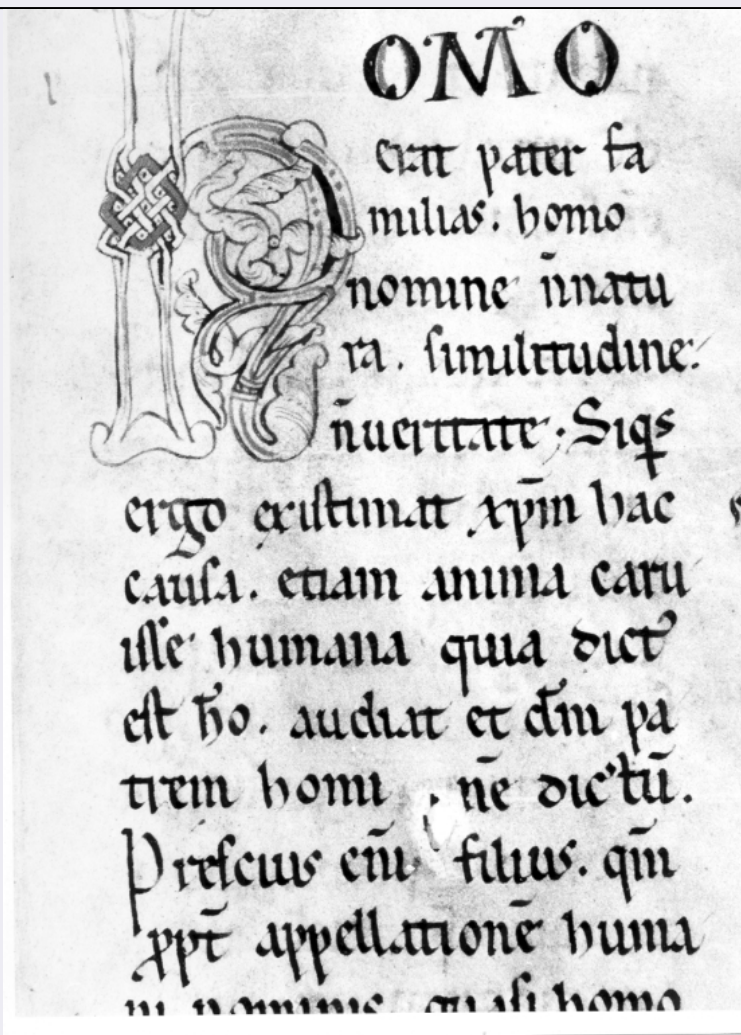 HOMO
erat pater fa
milias. homo
nomine n̄natu
ra. similitudine.
n̄ueritate; Siq̄s
ergo existimat xp̄m hac
causa. etiam anima caru
isse humana quia dict᷒
est ho̅. audiat et dm̄ pa
trem homi nē dictū.
Prescius eni̅ filius. qm̄
ꝓpt̄ appellationē huma
ni nominis quasi homo